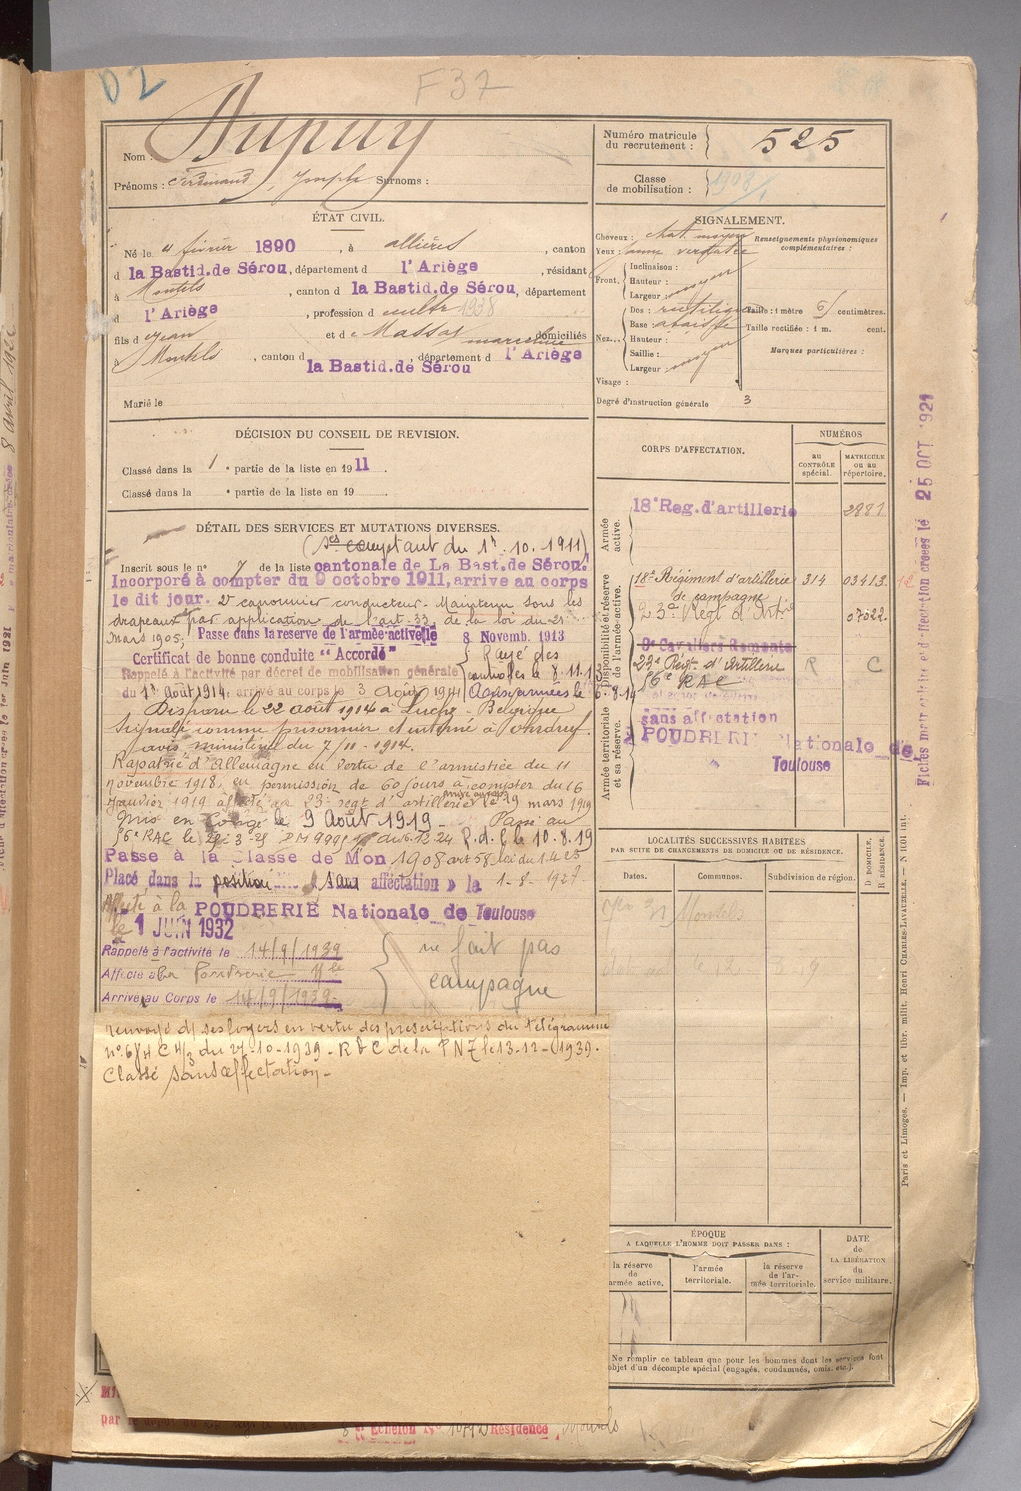 D2
F37
Nom : Dupuy
Prénoms : Ferdinand, Joseph Surnoms :
Numéro matricule du recrutement : 525
Classe de mobilisation : 1908
ÉTAT CIVIL.
Né le 4 février 1890, à Allières, canton
d la Bastid.de Sérou, département d l'Ariège, résidant
à Montels, canton d la Bastid.de Sérou, département
d l'Ariège, profession d cultr 1938
fils d Jean et d Massat marceline domiciliés
à Montels, canton d la Bastid.de Sérou, département d l'Ariège
Marié le
SIGNALEMENT.
Cheveux : chat. moyen
Yeux : jaune verdatre
Front. Inclinaison :
Hauteur : moyen
Largeur :
Nez... Dos : rectiligne
Base : abaissée
Hauteur :
Saillie : moyen
Largeur :
Visage :
Renseignements physionomiques complémentaires :
Taille : 1 mètre 61 centimètres.
Taille rectifiée : 1 m. cent.
Marques particulières :
Degré d'instruction générale 3
DÉCISION DU CONSEIL DE REVISION.
Classé dans la 1e partie de la liste en 1911.
Classé dans la e partie de la liste en 19
DÉTAIL DES SERVICES ET MUTATIONS DIVERSES.
comptant du 1r.10.1911)
Inscrit sous le n° 7 de la liste cantonale de La Bast.de Sérou.
Incorporé à compter du 9 octobre 1911, arrive au corps
le dit jour. 2e canonnier conducteur. Maintenu sous les
drapeaux par application de l'art. 33 de la loi du 21
mars 1905; Passe dans la reserve de l'armée activelle 8 Novemb. 1913
Certificat de bonne conduite "Accordé" Rayé des
Rappelé à l'activité par décret de mobilisation générale contrôles le 8.11.13
du 1er Août 1914, arrivé au corps le 3 Août 1914 Aux armées le 6-8-14
Disparu le 22 août 1914 à Luchy - Belgique
Signalé comme prisonnier et interné à Ohrdruf.
avis ministériel du 7/11-1914.
Rapatrié d'Allemagne en vertu de l'armistice du 11
novembre 1918, en permission de 60 jours à compter du 16
janvier 1919 affecté au 23e regt d'artillerie arrivé au corps le 19 mars 1919
Mis en Congé le 9 Août 1919 - Passé au
56e RAC du 6.12.24 R.d.C le 10.8.19
Passe à la Classe de Mon 1908 art 58 loi du 1.4.23
Placé dans la position sans affectation » le 1-8-1927
Affecté à la POUDRERIE Nationale de Toulouse
le 1 JUIN 1932
Rappelé à l'activité le 14/9/1939
Affecté à la Poudrerie Nle
Arrivé au Corps le 14/9/1939
ne fait pas campagne
renvoyé ds ses foyers en vertu des prescriptions du télégramme
R d C de la PNT le 13-12-1939.
Classé sans affectation-
CORPS D'AFFECTATION.
NUMÉROS
AU CONTRÔLE SPÉCIAL.
MATRICULE OU AU RÉPERTOIRE.
Armée active.
18e Reg. d'artillerie 2881
Disponibilité et réserve de l'armée active.
18e Régiment d'artillerie de campagne 314 03413
23e Regt d'Arti 07022
Dt Cavaliers Remonte
23e Régt. d'Artillerie R C
56e RAC
Armée territoriale et sa réserve.
sans affectation
POUDRERIE Nationale de Toulouse
LOCALITÉS SUCCESSIVES HABITÉES
PAR SUITE DE CHANGEMENTS DE DOMICILE OU DE RÉSIDENCE.
Dates.
Communes.
Subdivision de région.
D DOMICILE.
R RÉSIDENCE.
Montels
ÉPOQUE
A LAQUELLE L'HOMME DOIT PASSER DANS :
la réserve de l'armée active.
l'armée territoriale.
la réserve de l'armée territoriale.
DATE de LA LIBÉRATION du service militaire.
Ne remplir ce tableau que pour les hommes dont les services font
objet d'un décompte spécial (engagés, condamnés, omis, etc.).
Echelon No 10792 Résidence Montels
Paris et Limoges. — Imp. et libr. milit. Henri CHARLES-LAVAUZELLE. — N 1601 int.
Fiches matriculaire et d'affectation créées le 25 OCT 1921
8 avril 192